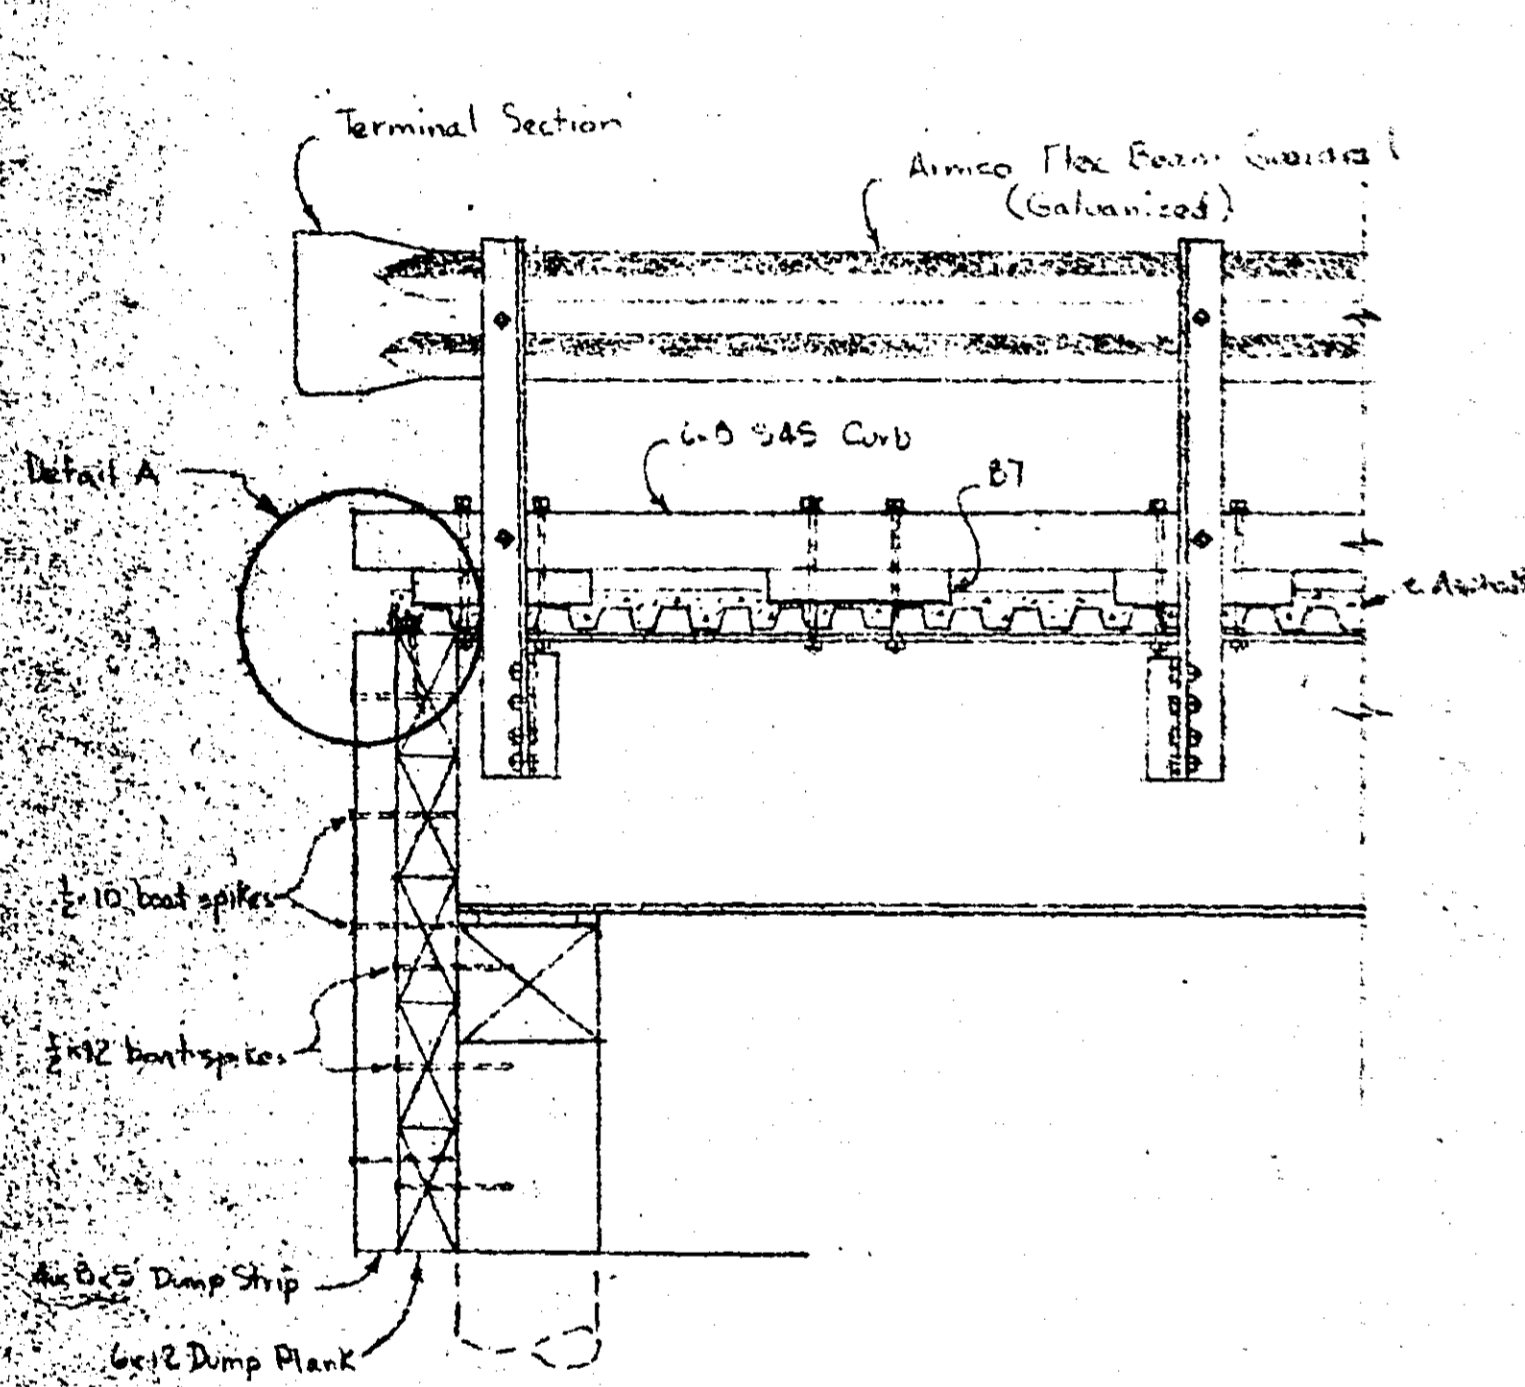 Terminal Section
Armco Flex Beam Guardrail
(Galvanized)
6x8 S4S Curb
B7
Detail A
Asphalt
½x10 boat spikes
½x12 boat spikes
4x8x5' Dump Strip
6x12 Dump Plank